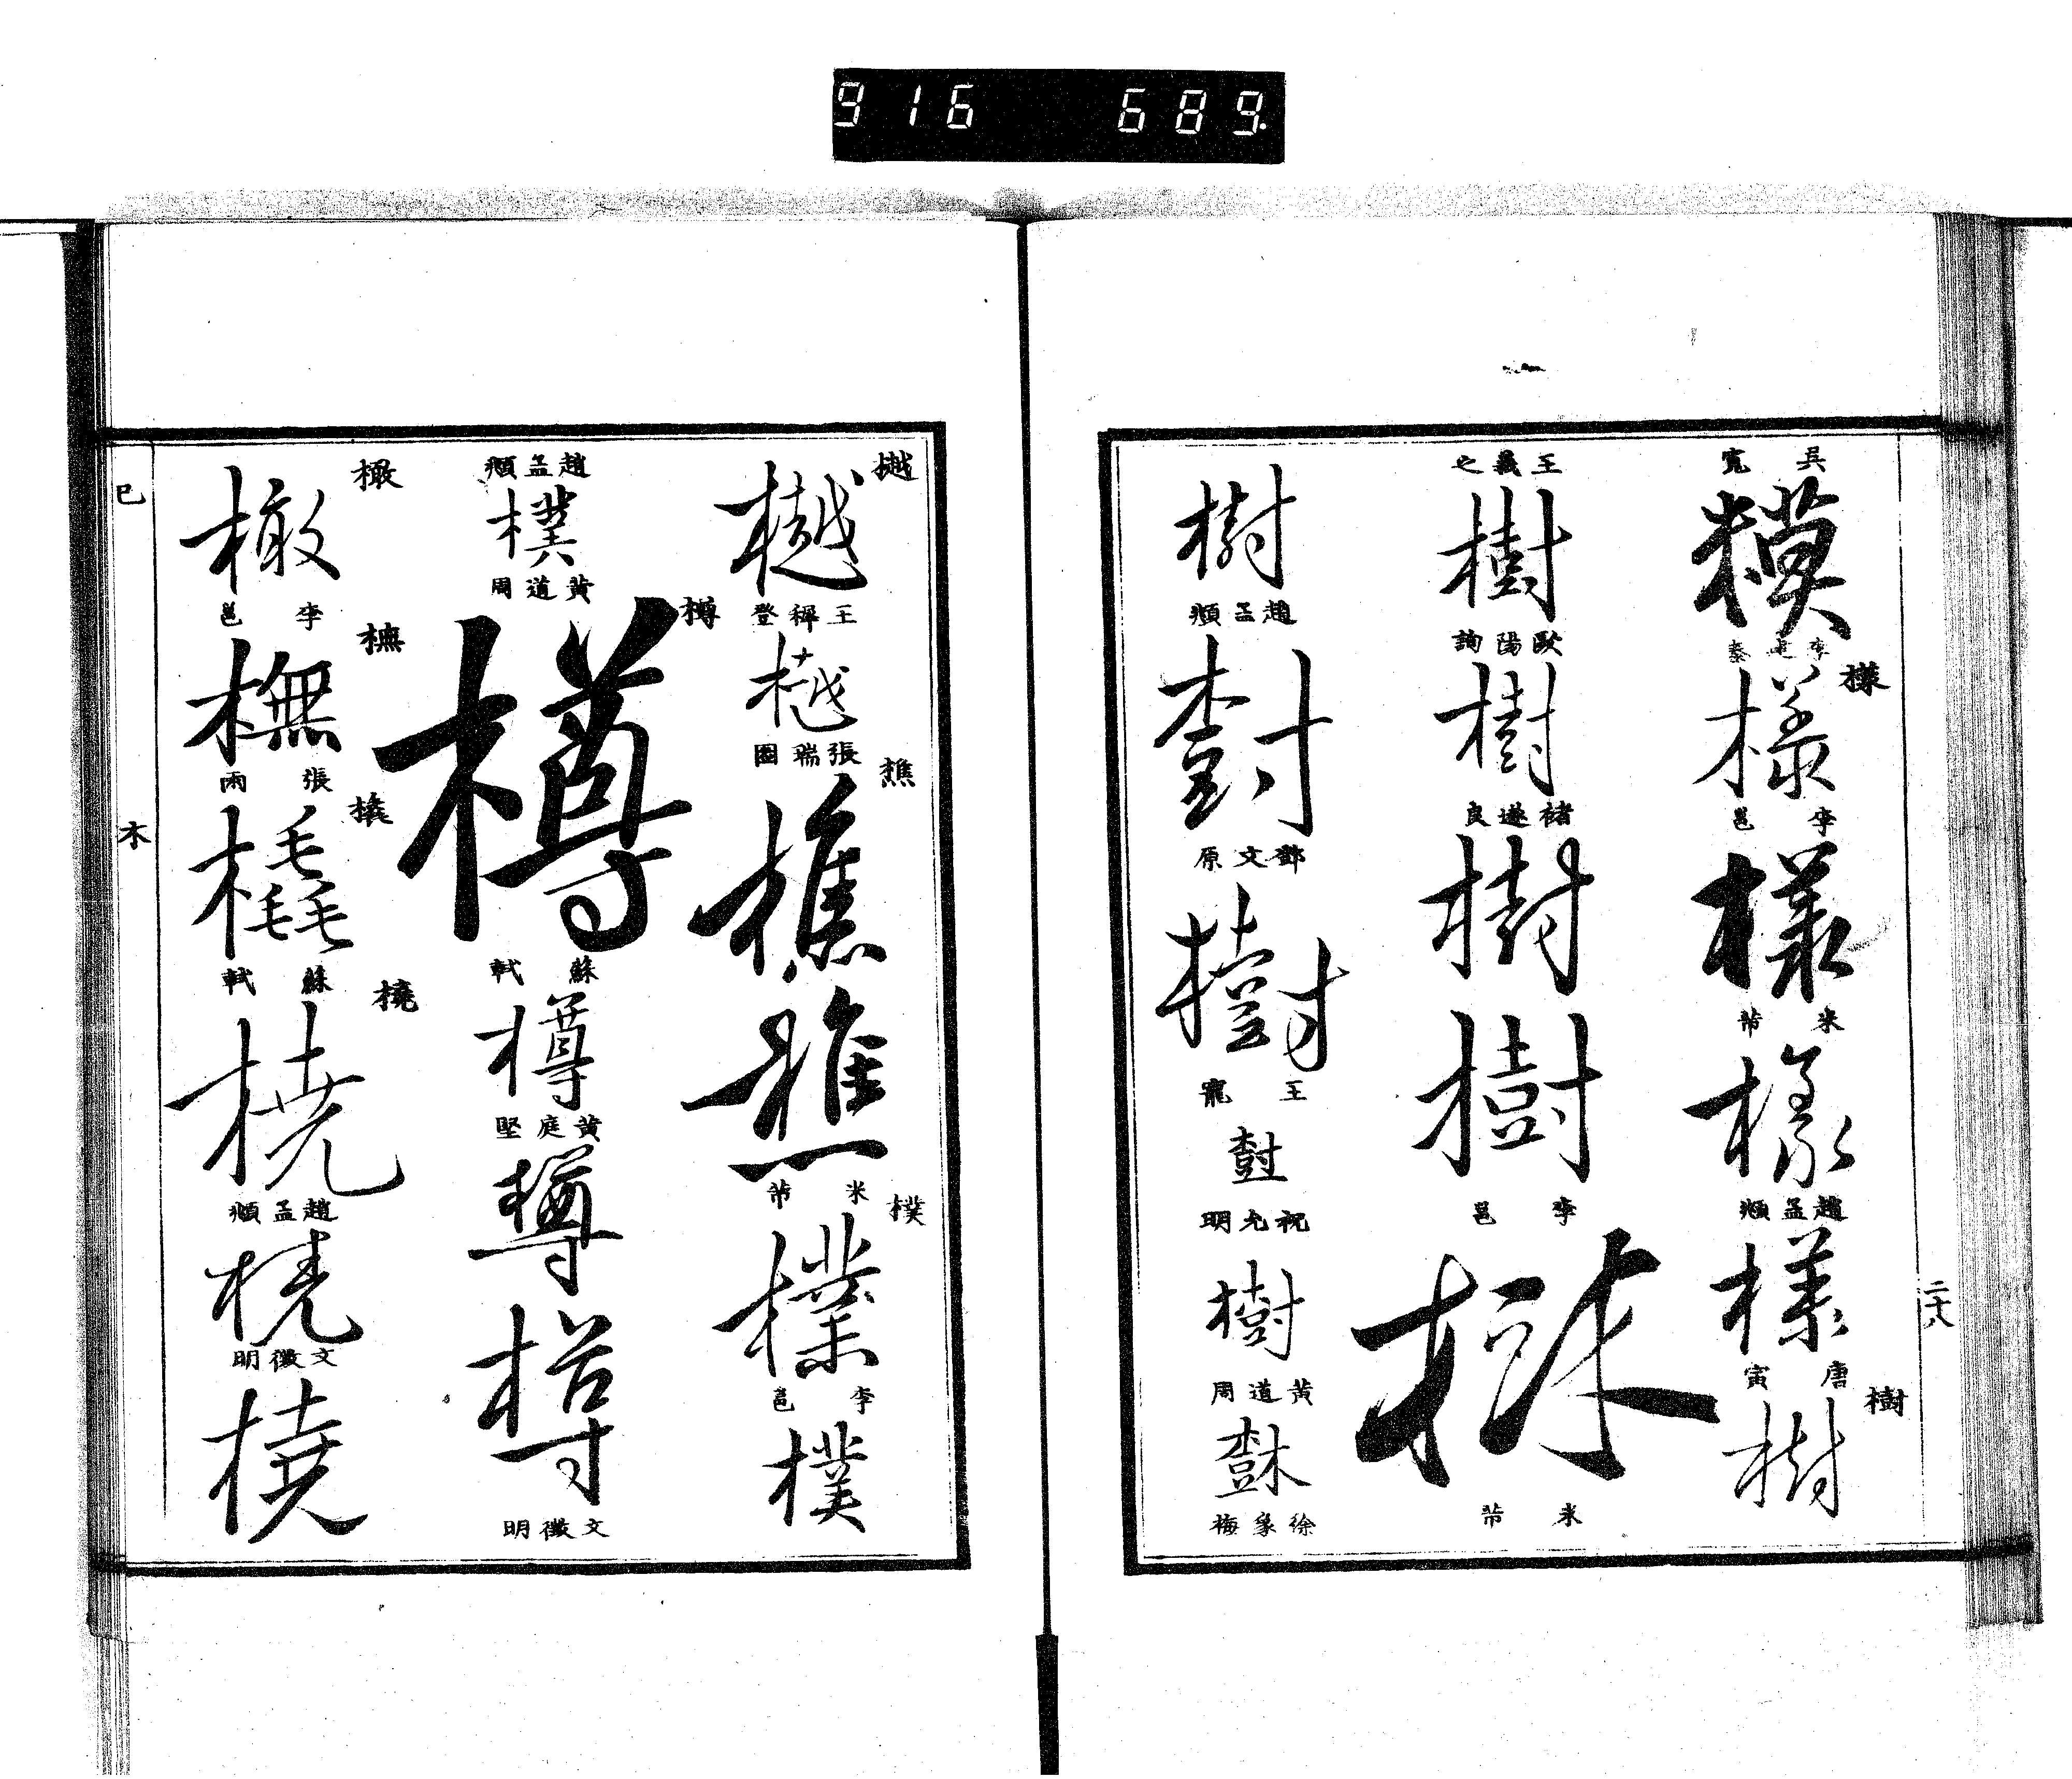 916 689.
二十八
吳寬
模
李世泰
樣
樣
李邕
樣
米芾
樣
趙孟頫
樣
唐寅
樹
樹
王羲之
樹
歐陽詢
樹
褚遂良
樹
樹
李邕
樹
米芾
樹
趙孟頫
樹
鄧文原
樹
王寵
樹
祝允明
樹
黃道周
樹
徐象梅
樾
樾
王穉登
樾
張瑞圖
樵
樵
樵
米芾
樸
樸
李邕
樸
趙孟頫
樸
黃道周
樽
樽
蘇軾
樽
黃庭堅
樽
樽
文徵明
橄
橄
李邕
橅
橅
張雨
橇
橇
蘇軾
橈
橈
趙孟頫
橈
文徵明
橈
巳
木